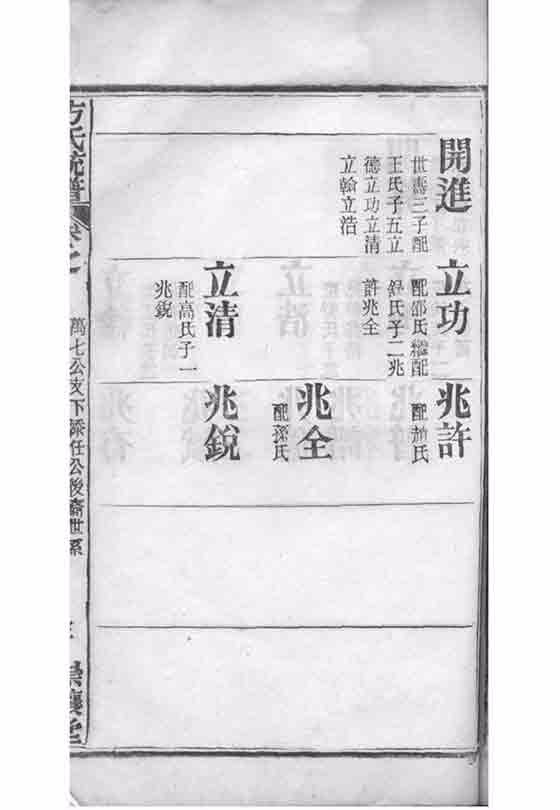 開進
世壽三子配
王氏子五立
德立功立清
立翰立浩
立功
配邵氏繼配
舒氏子二兆
許兆全
立清
配高氏子一
兆銳
兆許
配趙氏
兆全
配孫氏
兆銳
方氏統譜
萬七公支下添任公後裔世系